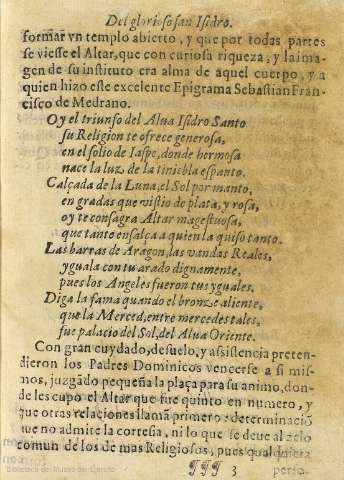 Del glorioso san Isidro.
formar vn templo abierto, y que por todas partes
se viesse el Altar, que con curiosa riqueza, y la ima-
gen de su instituto era alma de aquel cuerpo, y a
quien hizo este excelente Epigrama Sebastian Fran-
cisco de Medrano.
Oy el triunfo del Alua Isidro Santo
su Religion te ofrece generosa,
en el solio de Iaspe, donde hermosa
nace la luz de la tiniebla espanto.
Calçada de la Luna, el Sol por manto,
en gradas que vistio de plata, y rosa,
oy te consagra Altar magestuosa,
que tanto ensalça a quien la quiso tanto.
Las barras de Aragon, las vandas Reales,
yguala con tu arado dignamente,
pues los Angeles fueron tus yguales.
Diga la fama quando el bronze aliente,
que la Merced, entre mercedes tales,
fue palacio del Sol, del Alua Oriente.
Con gran cuydado, desuelo, y assistencia preten-
dieron los Padres Dominicos vencerse a si mis-
mos, juzgādo pequeña la plaça para su animo, don-
de les cupo el Altar que fue quinto en numero, y
que otras relaciones llamā primero: determinaciō
que no admite la cortesia, ni lo que se deue al zelo
comun de los de mas Religiosos, pues qualquiera
¶¶¶ 3 perso-
Biblioteca del Museo del Ejército